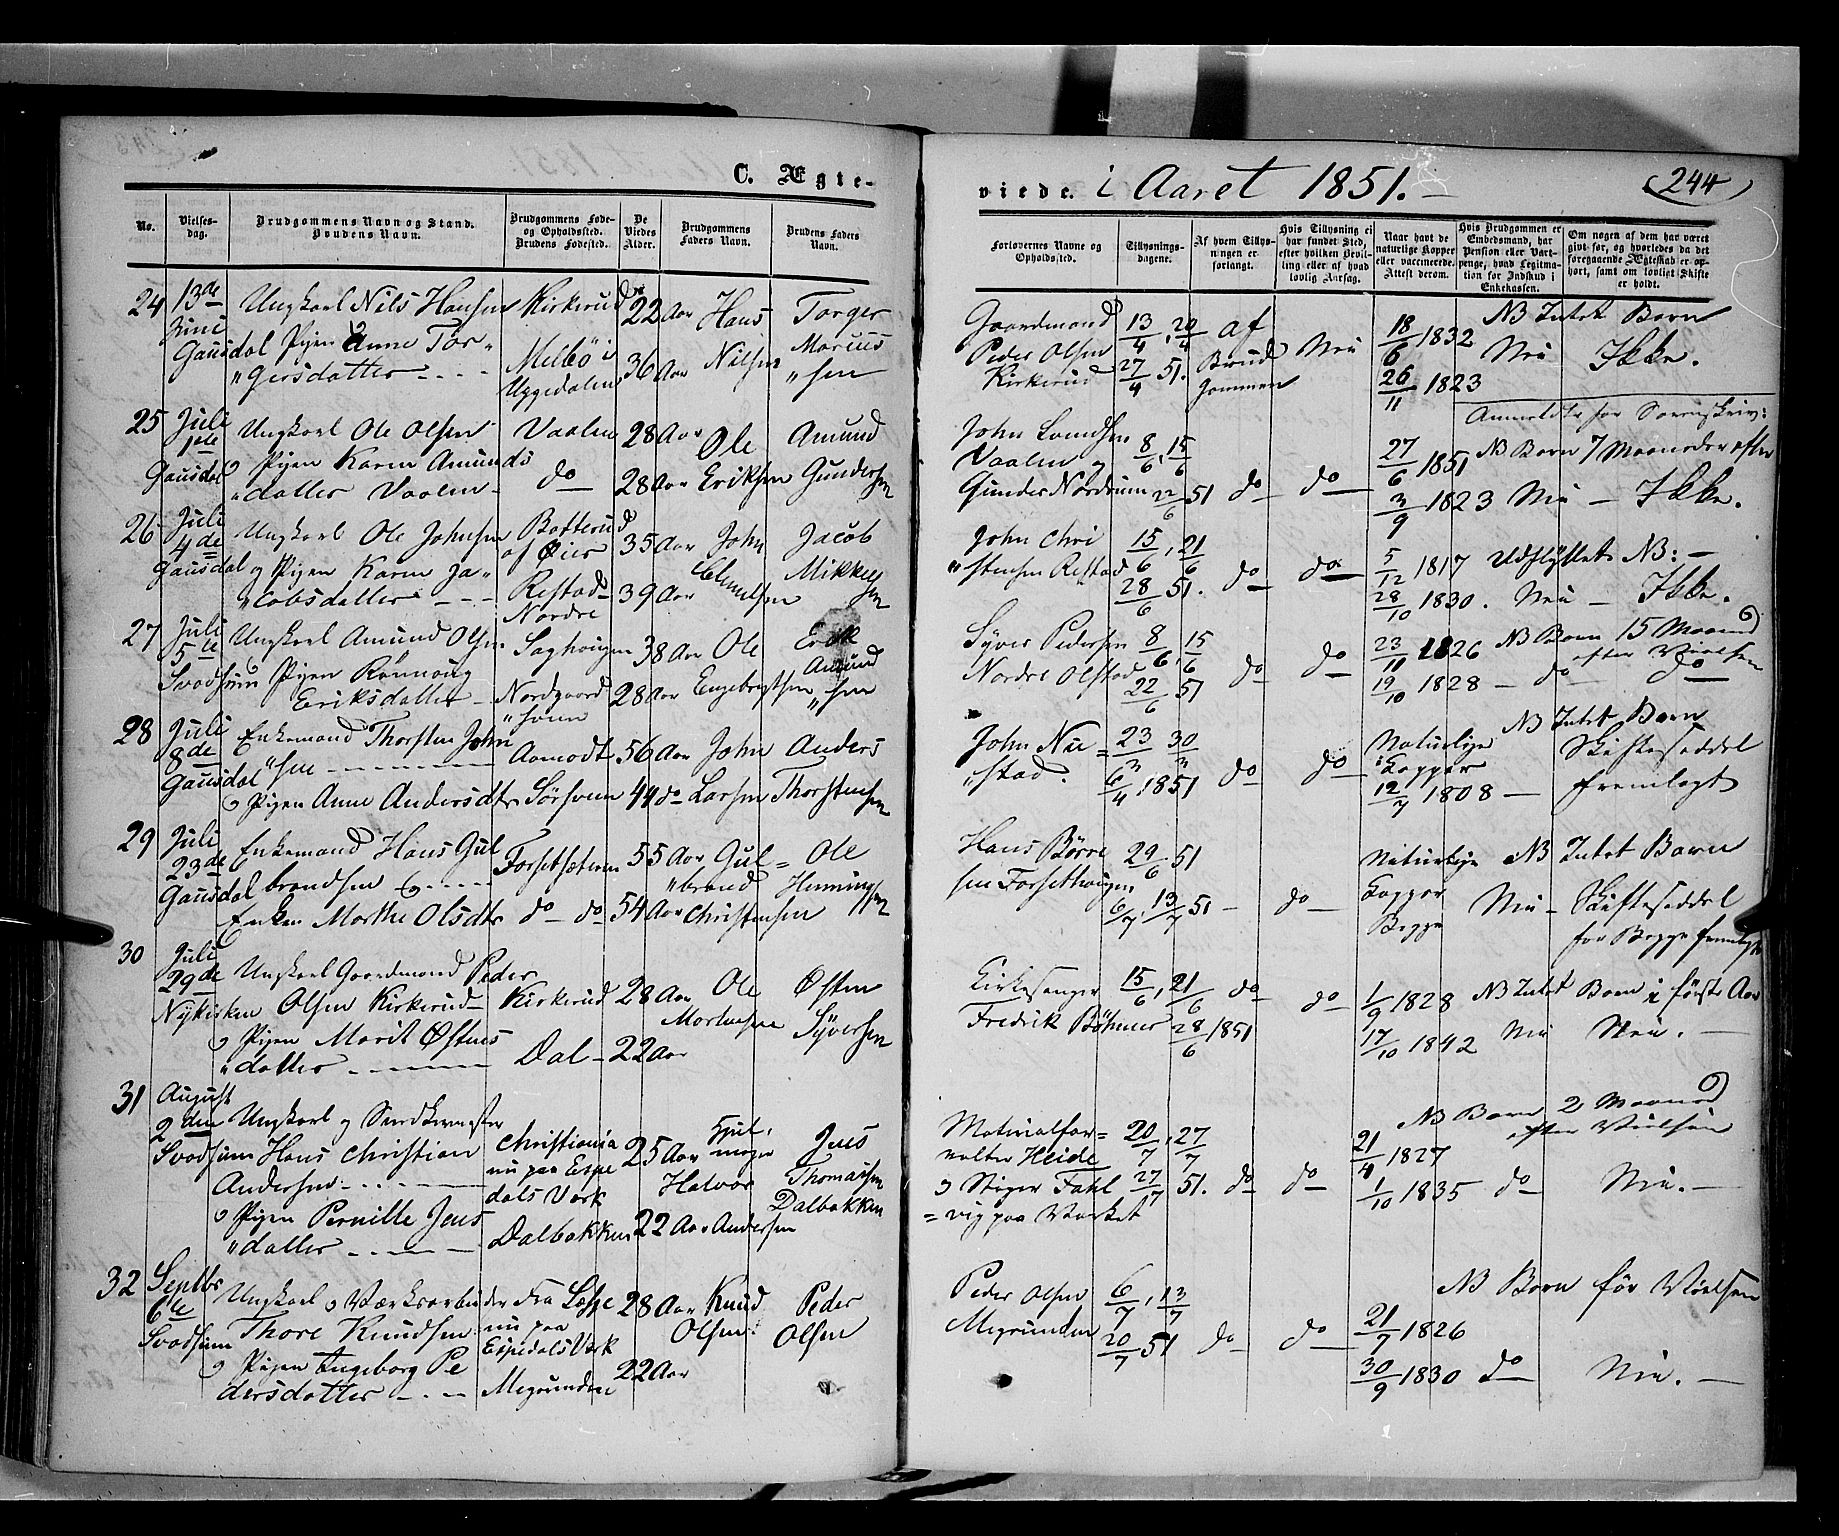 C. Ægte-
viede. i Aaret 1851.
244
No.
Vielses-
dag.
Brudgommens Navn og Stand.
Brudens Navn.
Brudgommens Føde-
og Opholdssted.
Brudens Fødested.
De
Viedes
Alder.
Brudgommens
Faders Navn.
Brudens Faders
Navn.
Forlovernes Navne og
Opholdssted.
Tillysnings-
dagene.
Af hvem Tillys-
ningen er
forlangt.
Hvis Tillysning ei
har fundet Sted,
efter hvilken Bevil-
ling eller af hvad
lovlig Aarsag.
Naar havt de
naturlige Kopper
eller vaccinerede.
Attest derom.
Hvis Brudgommen er
Embedsmand, har
Pension eller Vart-
penge, hvad Legitima-
tion for Indskud i
Enkekassen.
Om nogen af dem har været
givt før, og hvorledes da det
foregaaende Ægteskab er op-
hørt, samt om lovligt Skifte
er holdt.
24 13de Juni Gausdal
Ungkarl Nils Hansen
Pigen Anne Tor-
"gersdatter
Kirkerud
Melbö i
22 Aar
36 Aar
Hans
Nilsen
Torger
Marius
"sen
Gaardmand
Peder Olsen
Kirkerud
13/4, 20/4
27/4 51.
af
Brud
gommen
Nei
18/6 1832
26/11 1823
NB Intet Barn
Nei
Ikke.
25 Juli 1ste Gausdal
Ungkarl Ole Olsen
og Pigen Karen Amunds
"datter Vaalen
Vaalen
do
28 Aar
28 Aar
Ole
Eriksen
Amund
Gundersen
John
Vaalen og
Gunder Nordrum
8/6, 15/6
22/6 51
do
do
27/6 1851
3/9 1823
NB Barn 7 Maaneder efter
Nei - Ikke.
26 Juli 4de Gausdal
Ungkarl Ole Johnsen
og Pigen Karen Ja-
"cobsdatter
af Öier
Restad
Nordre
35 Aar
39 Aar
John
Jacob
Mikkelsen
John Chri
"stensen Restad
15/6, 21/6
28/6 51.
do
do
5/12 1817
28/10 1830.
Udflyttet NB: -
Nei - Ikke.
27 Juli 5te Svadsum
Ungkarl Amund Olsen
og Pigen Rönnoug
Eriksdatter
Saghougen
Nordgaard
38 Aar
28 Aar
Ole
Engebregtsen
Erik
Amund
"sen
Syver Pedersen
Nordre Olstad
8/6, 15/6
22/6 51
do
do
23/11 1826
19/10 1828
NB Barn 15 Maaned
efter Vielsen
do do
28 Juli 8de Gausdal
Enkemand Thorsten John
"sen
og Pigen Anne Andersdtr
Aamodt
Sörsveen
56 Aar
44 do
John
Larsen
Anders
Thorstensen
John Nu=
"stad.
23/3 30/3
6/4 1851
do
do
Naturlige
Kopper
12/7 1808
NB Intet Barn
Skifteseddel
fremlagt
29 Juli 23de Gausdal
Enkemand Hans Gul
brandsen og
Enken Marthe Olsdtr
Forsetsæteren
do do
55 Aar
54 Aar
Gul=
"brand
Christensen
Ole
Henningsen
Hans Börre
sen Forsethougen
29/6 51
6/7, 13/7 51
do
Naturlige
Kopper
Begge
NB Intet Barn
Nei - Skifteseddel
for Begge fremlagt
30 Juli 29de Nykirken
Ungkarl Gaardmand Peder
Olsen Kirkerud
og Pigen Marit Östens
"datter
Kirkerud
Dal
28 Aar
22 Aar
Ole
Mortensen
Østen
Syversen
Kirkesanger
Fredrik Böhmer
15/6, 21/6
28/6 1851
do
do
1/9 1828
17/10 1842
NB Intet Barn i förste Aar
Nei Nei.
31 August 2den Svadsum
Ungkarl og
Hans Christian
Andersen
og Pigen Pernille Jens
"datter
Christiania
nu paa Espe
dals Værk
Dalbakken
25 Aar
22 Aar
Halvor
Andersen
Jens
Thomassen
Dalbakken
Materialfor=
valter Heide
og Stiger Fahl
=vig paa Værket
20/7, 27/7
27/7 51.
do
do
21/4 1827
1/10 1835
NB Barn 2 Maaned
efter Vielsen
do
Nei.
32 Septbr 6te Svadsum
Ungkarl og Værksarbeider
Thore Knudsen
og Pigen Ingeborg Pe
dersdatter
Fra Læsje
nu paa
Espedals Værk
Megrunden
28 Aar
22 Aar
Knud
Olsen
Peder
Olsen
Peder Olsen
Megrunden
6/7, 13/7
20/7 51
do
do
21/7 1826
30/9 1830
NB Barn för Vielsen
do
Nei.